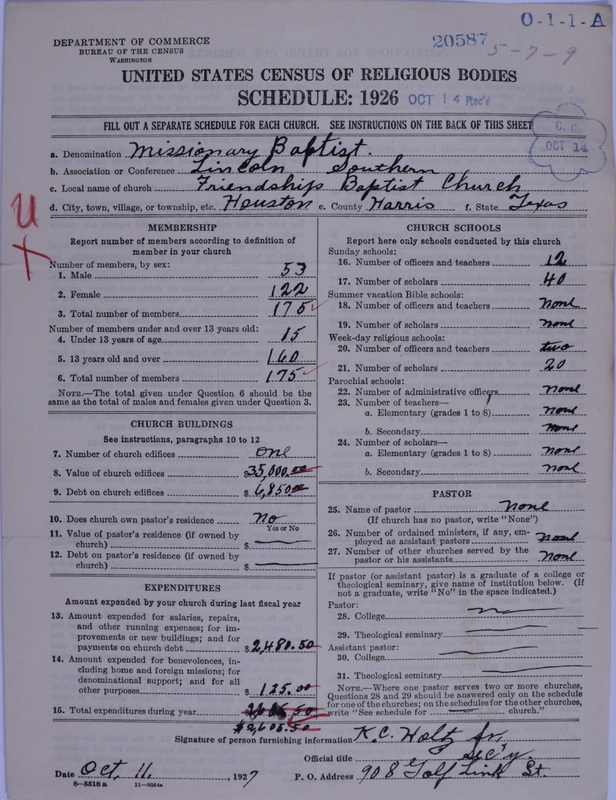 O-1-1-A
20587
5-7-9
DEPARTMENT OF COMMERCE
BUREAU OF THE CENSUS
WASHINGTON
UNITED STATES CENSUS OF RELIGIOUS BODIES
SCHEDULE: 1926 OCT 14 Rec'd
FILL OUT A SEPARATE SCHEDULE FOR EACH CHURCH. SEE INSTRUCTIONS ON THE BACK OF THIS SHEET
C. C.
OCT 14
a. Denomination Missionary Baptist.
b. Association or Conference Lincoln Southern
c. Local name of church Friendship Baptist Church
d. City, town, village, or township, etc. Houston e. County Harris f. State Texas
U
X
MEMBERSHIP
Report number of members according to definition of
member in your church
Number of members, by sex:
1. Male 53
2. Female 122
3. Total number of members 175
Number of members under and over 13 years old:
4. Under 13 years of age 15
5. 13 years old and over 160
6. Total number of members 175
NOTE.—The total given under Question 6 should be
same as the total of males and females given under Question 3.
CHURCH BUILDINGS
See instructions, paragraphs 10 to 12
7. Number of church edifices one
8. Value of church edifices $35,000.00
9. Debt on church edifices $6,850.00
10. Does church own pastor's residence No
Yes or No
11. Value of pastor's residence (if owned by
church) $
12. Debt on pastor's residence (if owned by
church) $
EXPENDITURES
Amount expended by your church during last fiscal year
13. Amount expended for salaries, repairs,
and other running expenses; for im-
provements or new buildings; and for
payments on church debt $2,480.50
14. Amount expended for benevolences, in-
cluding home and foreign missions; for
denominational support; and for all
other purposes $125.00
15. Total expenditures during year
$2,605.50
CHURCH SCHOOLS
Report here only schools conducted by this church
Sunday schools:
16. Number of officers and teachers 12
17. Number of scholars 40
Summer vacation Bible schools:
18. Number of officers and teachers none
19. Number of scholars none
Week-day religious schools:
20. Number of officers and teachers two
21. Number of scholars 20
Parochial schools:
22. Number of administrative officers none
23. Number of teachers—
a. Elementary (grades 1 to 8) none
b. Secondary none
24. Number of scholars—
a. Elementary (grades 1 to 8) none
b. Secondary none
PASTOR
25. Name of pastor none
(If church has no pastor, write "None")
26. Number of ordained ministers, if any, em-
ployed as assistant pastors none
27. Number of other churches served by the
pastor or his assistants none
If pastor (or assistant pastor) is a graduate of a college or
theological seminary, give name of institution below. (If
not a graduate, write "No" in the space indicated.)
Pastor:
28. College
29. Theological seminary
Assistant pastor:
30. College
31. Theological seminary
NOTE.—Where one pastor serves two or more churches,
Questions 28 and 29 should be answered only on the schedule
for one of the churches; on the schedules for the other churches,
write "See schedule for church."
Signature of person furnishing information K.C. Holtz Jr.
Official title Sec'y.
Date Oct. 11, 1927 P. O. Address 908 Golf Link St.
8—5518 a 11—9084a